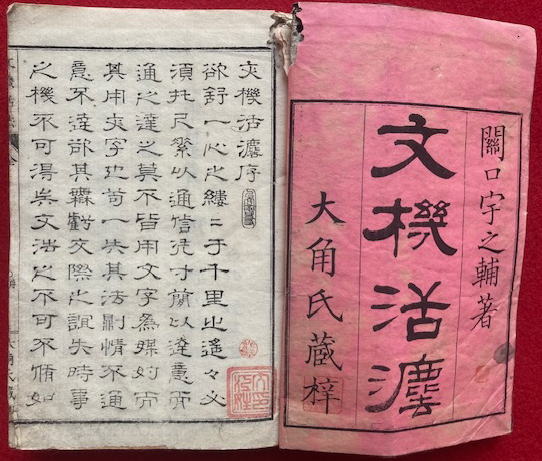 關口宇之輔著
文機活灋
大角氏藏梓
文機活灋序
欲舒一心之縷〻于千里之遙々必
須托尺素以通信凭寸簡以達意而
通之達之莫不皆用文字為媒妁而
其用文字也苟一失其法則情不通
意不達 其 交際之誼失時事
之機不可得矣文法之不可不脩如
大角氏藏